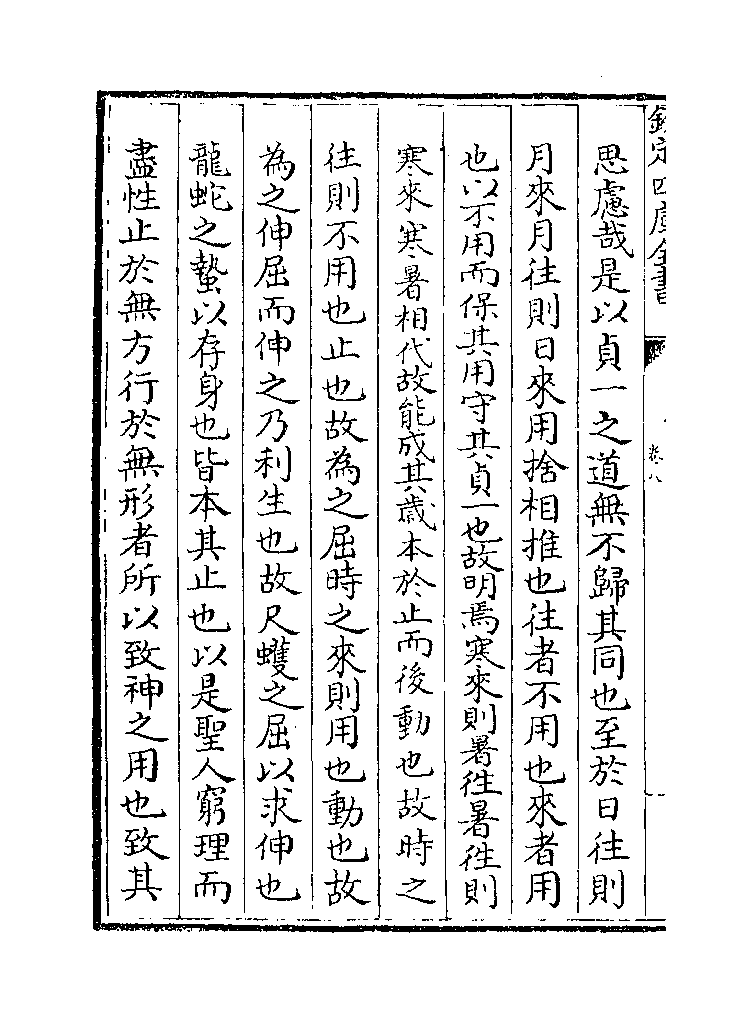 欽定四庫全書
卷八
思慮哉是以貞一之道無不歸其同也至於日往則
月來月往則日來用捨相推也往者不用也來者用
也以不用而保其用守其貞一也故明焉寒來則暑往暑往則
寒來寒暑相代故能成其歲本於止而後動也故時之
往則不用也止也故為之屈時之來則用也動也故
為之伸屈而伸之乃利生也故尺蠖之屈以求伸也
龍蛇之蟄以存身也皆本其止也以是聖人窮理而
盡性止於無方行於無形者所以致神之用也致其